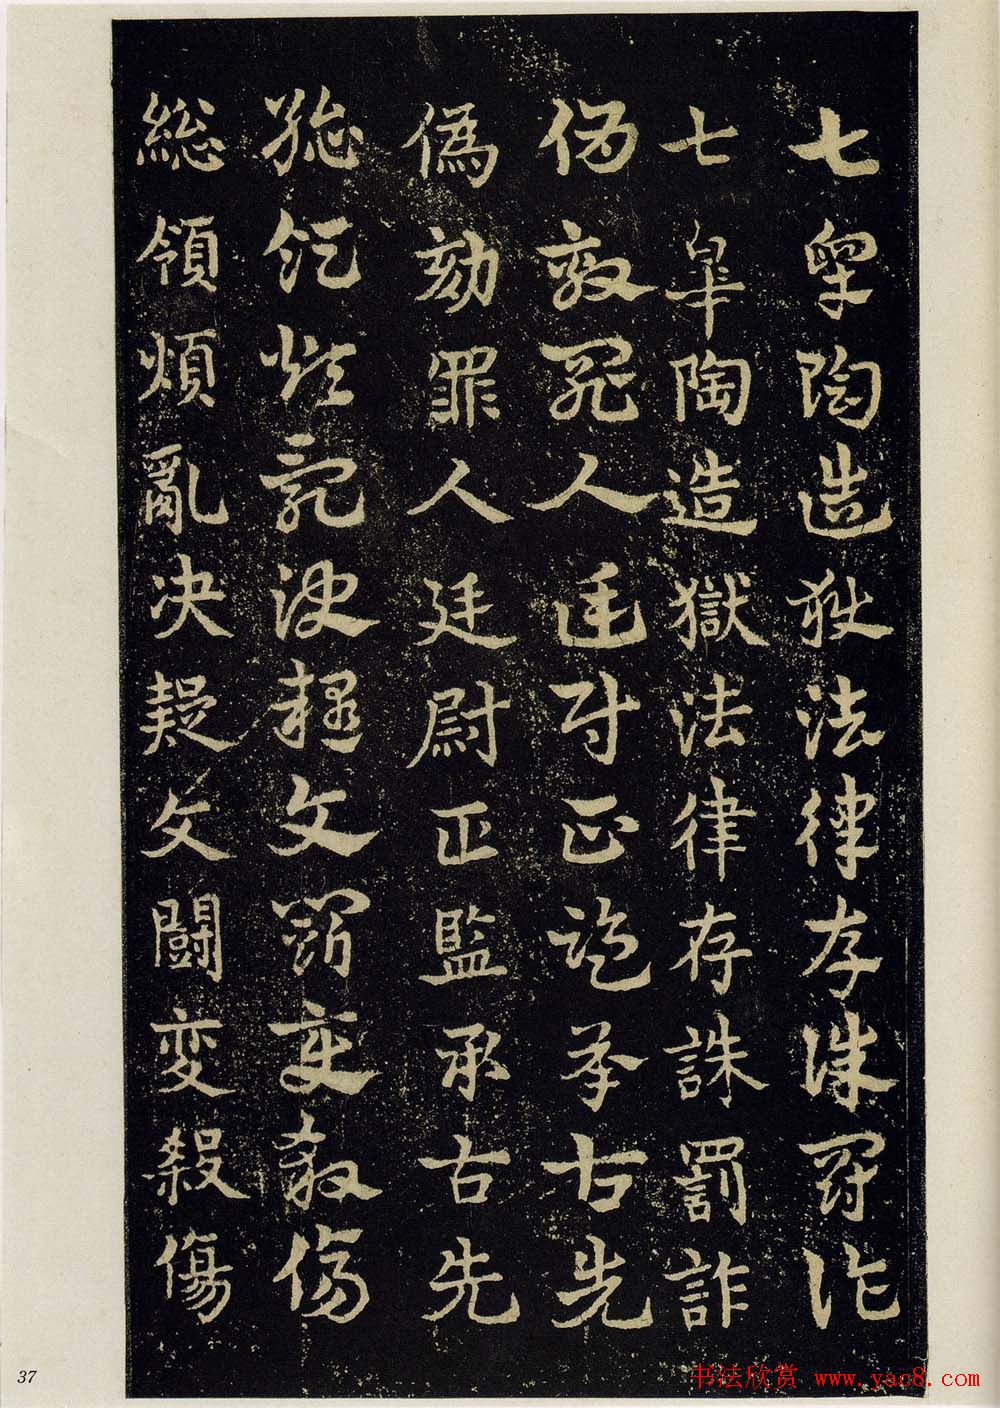 七皋陶造獄法律存誅罰詐
七皋陶造獄法律存誅罰詐
偽劾罪人廷尉正監承古先
偽劾罪人廷尉正監承古先
總領煩亂決疑文鬭變殺傷
総領煩亂决疑文鬭変殺傷
37
书法欣赏 www.yac8.com